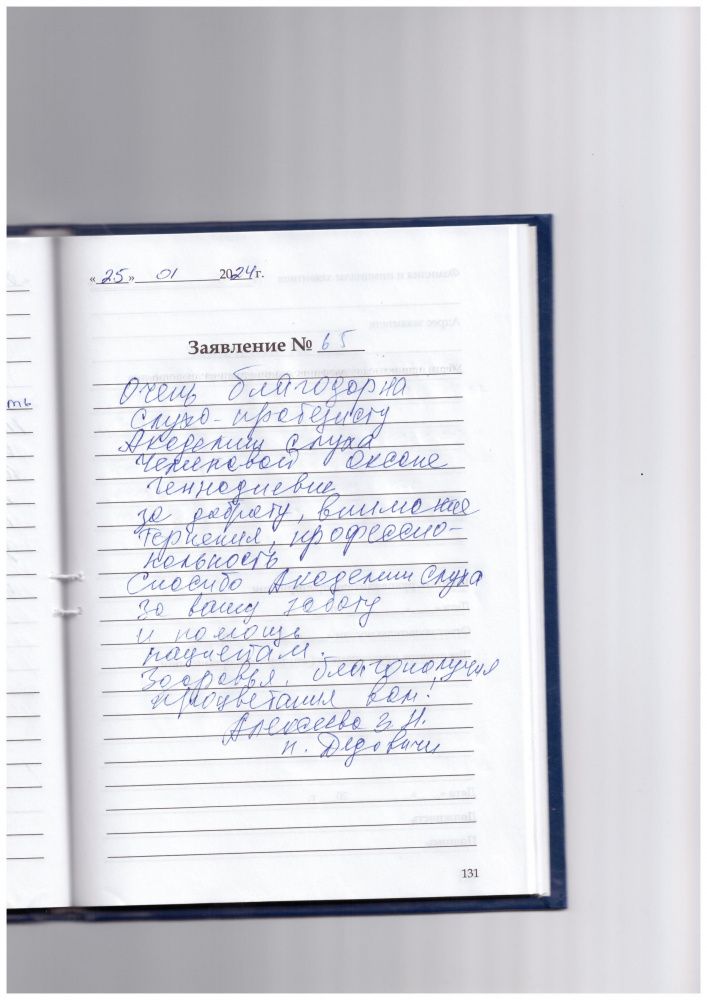 «25» 01 2024г.
Заявление № 65
Очень благодарна
слухо-протезисту
Академии слуха
Оксане
Геннадиевне
за доброту, внимание
терпения, профессио-
нальность
Спасибо Академии слуха
за вашу заботу
и помощь
пациентам.
Здоровья, благополучия
процветания вам!
Алексеева З.Н.
п. Дедовичи
ть
131